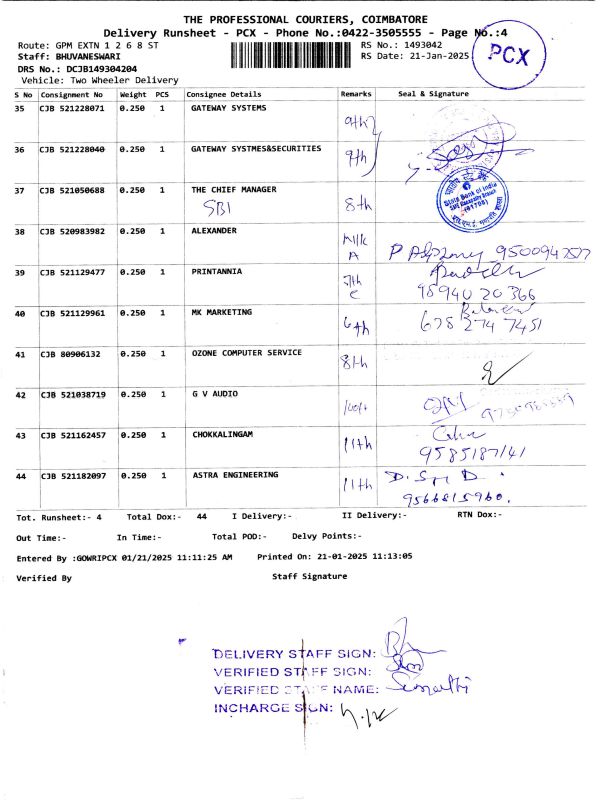 THE PROFESSIONAL COURIERS, COIMBATORE
Delivery Runsheet - PCX - Phone No.:0422-3505555 - Page No.:4
Route: GPM EXTN 1 2 6 8 ST
RS No.: 1493042
PCX
Staff: BHUVANESWARI
RS Date: 21-Jan-2025
DRS No.: DCJB149304204
Vehicle: Two Wheeler Delivery
S No Consignment No Weight PCS Consignee Details Remarks Seal & Signature
35 CJB 521228071 0.250 1 GATEWAY SYSTEMS 9th
36 CJB 521228040 0.250 1 GATEWAY SYSTMES&SECURITIES 9th
37 CJB 521050688 0.250 1 THE CHIEF MANAGER 8th
SBI
State Bank of India
38 CJB 520983982 0.250 1 ALEXANDER
39 CJB 521129477 0.250 1 PRINTANNIA 7th
98940 20366
40 CJB 521129961 0.250 1 MK MARKETING 6th
678 274 7451
41 CJB 80906132 0.250 1 OZONE COMPUTER SERVICE 8th
42 CJB 521038719 0.250 1 G V AUDIO
43 CJB 521162457 0.250 1 CHOKKALINGAM 11th
9585187141
44 CJB 521182097 0.250 1 ASTRA ENGINEERING 11th
9566815960.
Tot. Runsheet:- 4 Total Dox:- 44 I Delivery:- II Delivery:- RTN Dox:-
Out Time:- In Time:- Total POD:- Delvy Points:-
Entered By :GOWRIPCX 01/21/2025 11:11:25 AM Printed On: 21-01-2025 11:13:05
Verified By Staff Signature
DELIVERY STAFF SIGN:
VERIFIED STAFF SIGN:
VERIFIED STAFF NAME:
INCHARGE SIGN: